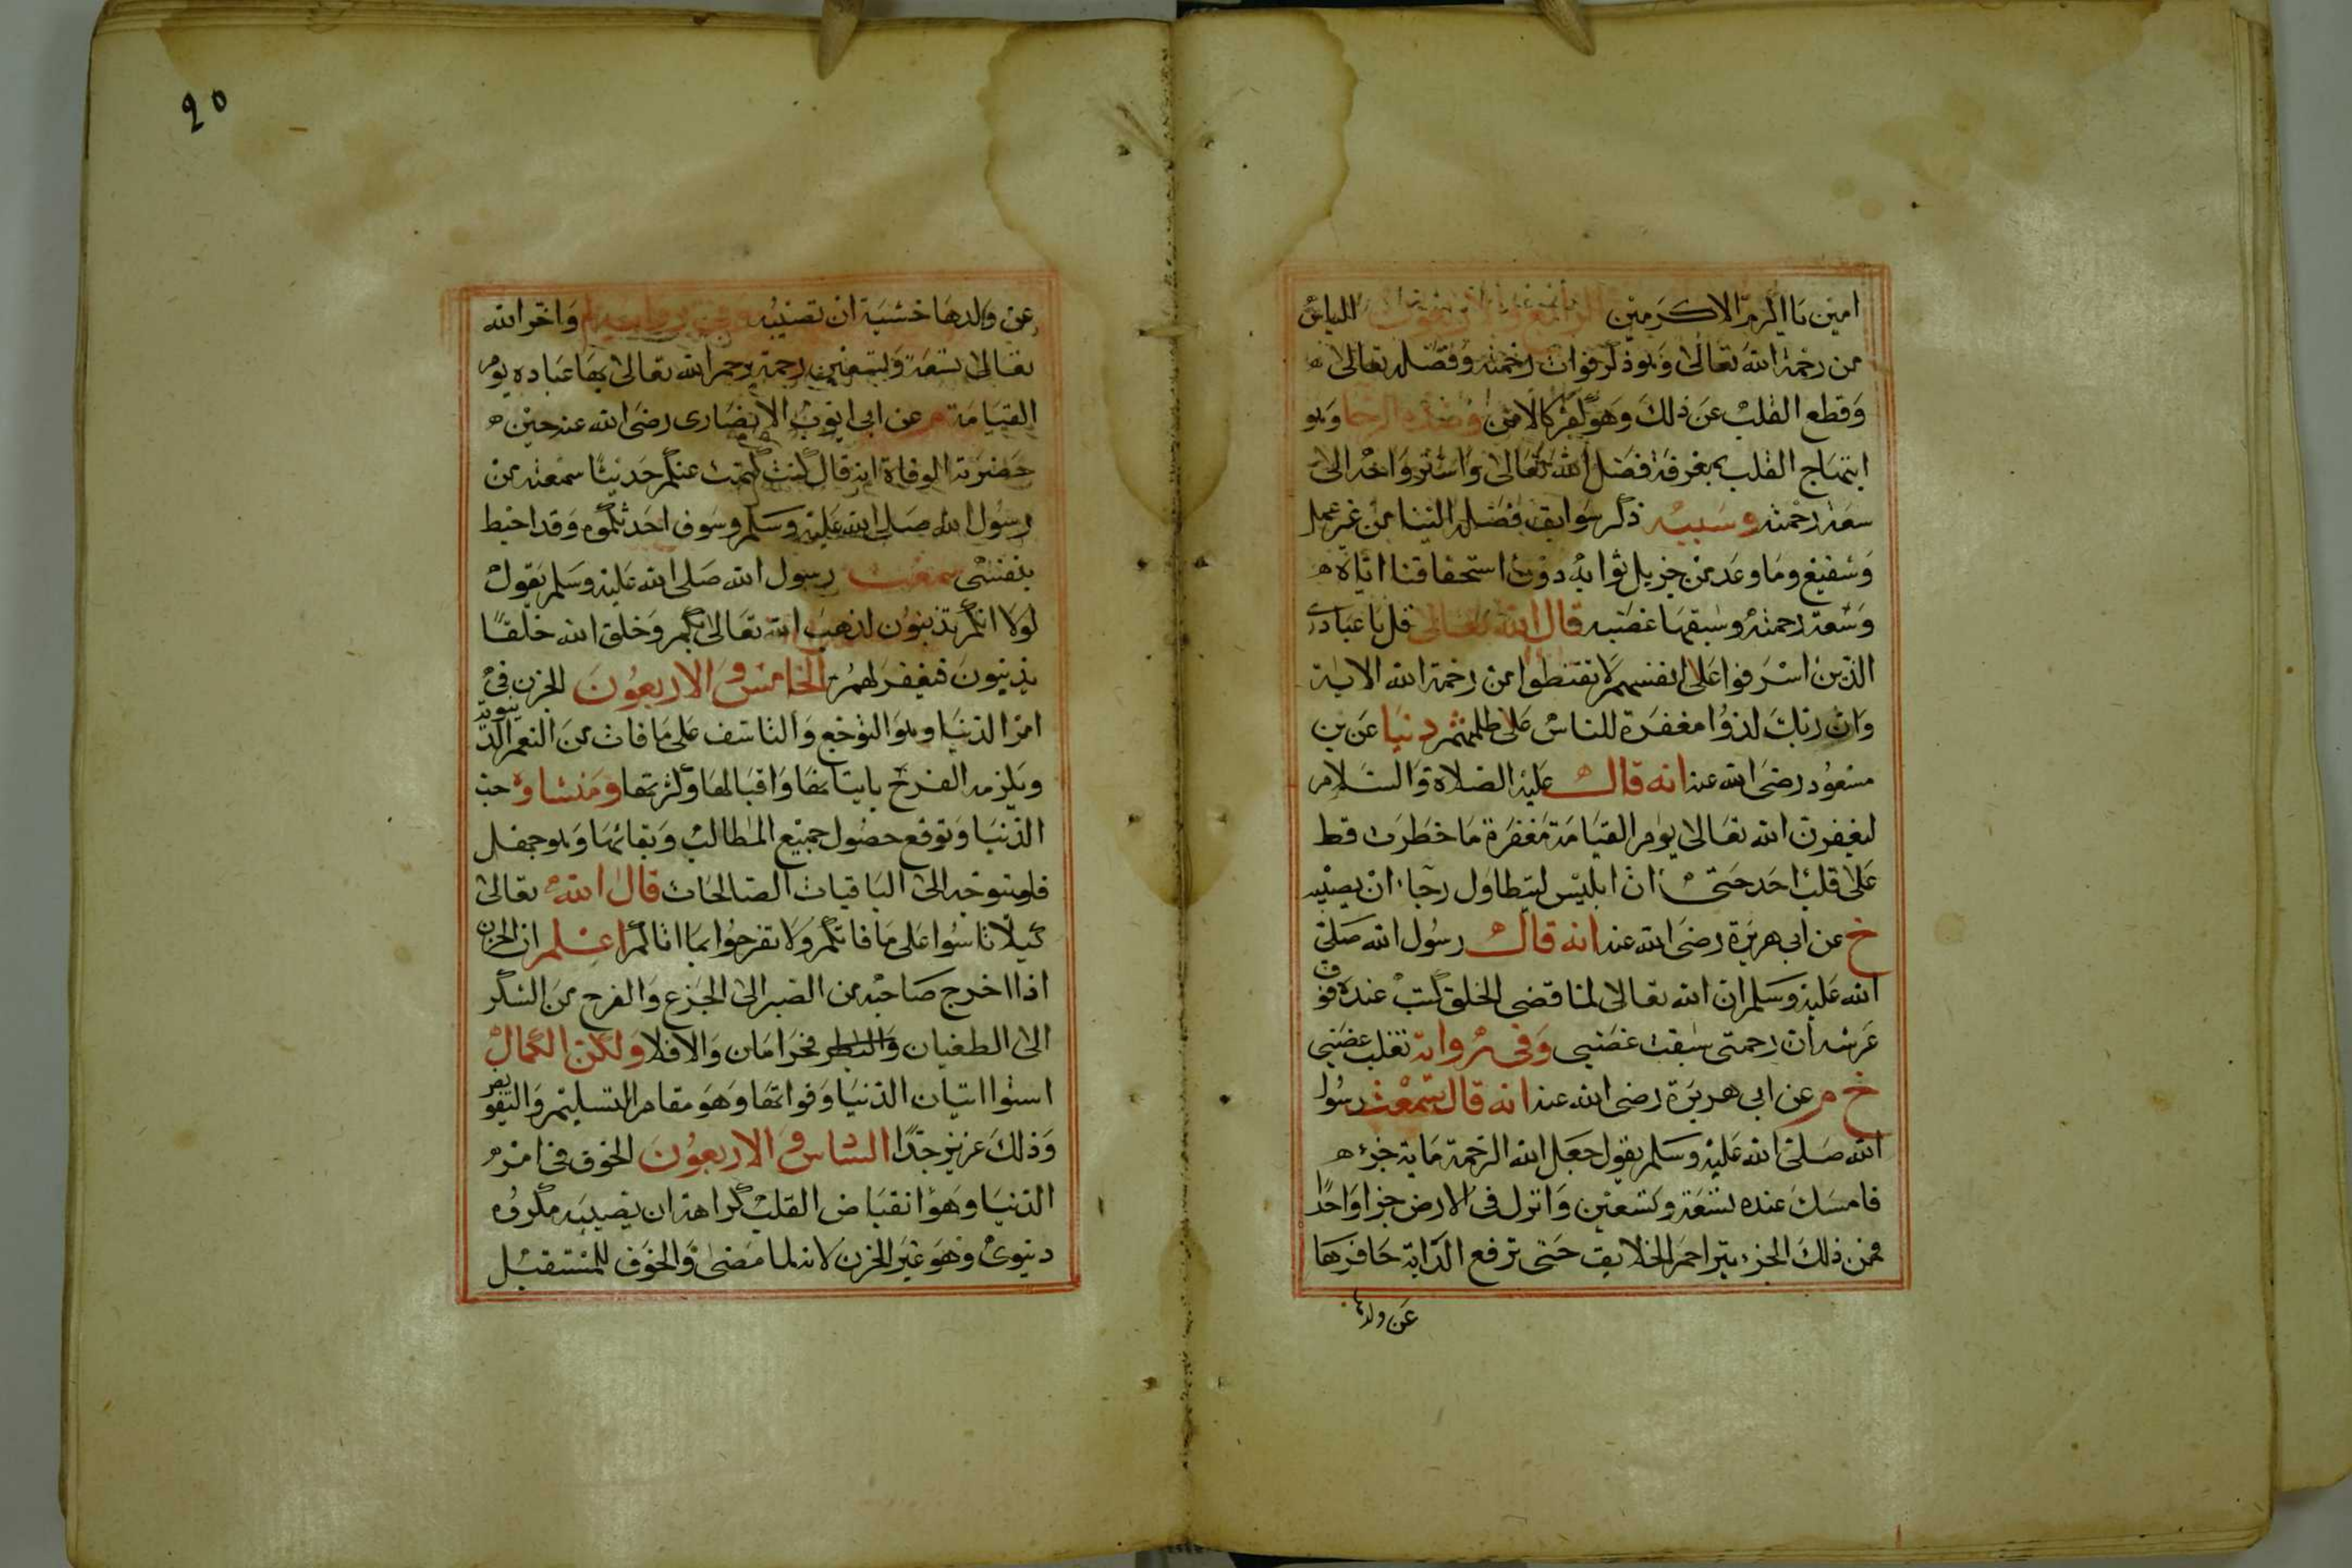 امين يا اكرم الاكرمين الرابع والاربعون الياس
من رحمة الله تعالى وهو ذكر فوات رحمته وفضله تعالى
وقطع القلب عن ذلك وهو كفر كالامن وضده الرجا وهو
ابتهاج القلب بمعرفة فضل الله تعالى واسترواحه الى
سعة رحمته وسببه ذكر سوابق فضله الينا من غير عمل
وشفيع وما وعد من جزيل ثوابه دون استحقاقنا اياه
وسعة رحمته وسبقها غضبه قال الله تعالى قل يا عبادى
الذين اسرفوا على انفسهم لا تقنطوا من رحمة الله الاية
وان ربك لذو مغفرة للناس على ظلمهم دنيا عن بن
مسعود رضى الله عنه انه قال عليه الصلاة والسلام
ليغفرن الله تعالى يوم القيامة مغفرة ما خطرت قط
على قلب احد حتى ان ابليس ليتطاول رجاء ان يصيبه
خ عن ابى هريرة رضى الله عنه انه قال رسول الله صلى
الله عليه وسلم ان الله تعالى لما قضى الخلق كتب عنده فوق
عرشه ان رحمتى سبقت غضبى وفى رواية تغلب غضبى
خ م عن ابى هريرة رضى الله عنه انه قال سمعت رسول
الله صلى الله عليه وسلم يقول جعل الله الرحمة ماية جزء
فامسك عنده تسعة وتسعين وانزل فى الارض جزا واحدا
فمن ذلك الجزء يتراحم الخلايق حتى ترفع الدابة حافرها
عن ولدها
20
عن ولدها خشية ان تصيبه وفى رواية م واخر الله
تعالى تسعة وتسعين رحمة يرحم الله تعالى بها عباده يوم
القيامة م عن ابى ايوب الانصارى رضى الله عنه حين
حضرته الوفاة انه قال كنت كتمت عنكم حديثا سمعته من
رسول الله صلى الله عليه وسلم وسوف احدثكموه وقد احيط
بنفسى سمعت رسول الله صلى الله عليه وسلم يقول
لولا انكم تذنبون لذهب الله تعالى بكم وخلق الله خلقا
يذنبون فيغفر لهم الخامس والاربعون الحزن فى
امر الدنيا وهو التوجع والتاسف على ما فات من النعم الدنيوية
ويلزمه الفرح باتيانها واقبالها وكثرتها ومنشاوه حب
الدنيا وتوقع حصول جميع المطالب وبقائها وهو جهل
فليتوجه الى الباقيات الصالحات قال الله تعالى
كيلا تاسوا على ما فاتكم ولا تفرحوا بما اتاكم اعلم ان الحزن
اذا اخرج صاحبه من الصبر الى الجزع والفرح من الشكر
الى الطغيان والبطر فحرامان والا فلا ولكن الكمال
استوا اتيان الدنيا وفواتها وهو مقام التسليم والتفويض
وذلك عزيز جدا السادس والاربعون الخوف فى امر
الدنيا وهو انقباض القلب كراهة ان يصيبه مكروه
دنيوى وهو غير الحزن لانه لما مضى والخوف للمستقبل